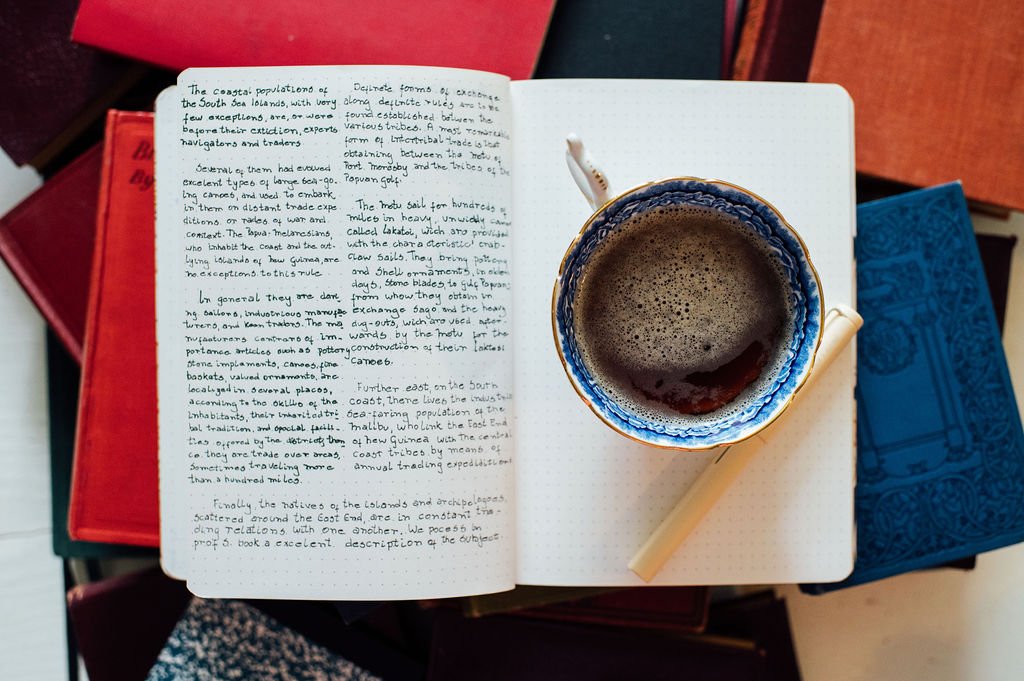 The coastal populations of
the South Sea Islands, with very
few exceptions, are, or were
before their extiction, experts
navigators and traders
Several of them had evolved
excelent types of large sea-go-
ing canoes, and used to embark
in them on distant trade expe
ditions or raides of war and
context. The Papua-Melanesians,
who inhabit the coast and the out-
lying islands of New Guinea, are
no exceptions to this rule
In general they are dar-
ng sailors, industrious manufac
turers, and keen traders. The ma
nufacturers centrons of im-
portance articles such as pottery
stone implaments, canoes, fine
baskets, valued ornaments, are
localized in several places,
according to the skilles of the
inhabitants, their inherited tri
bal tradition, and special facili-
ties offered by the district, then
ce they are trade over areas,
Sometimes traveling more
than a hundred miles.
Definite forms of exchange
along definite rules are to be
found established betwen the
various tribes. A most remarkable
form of intertribal trade is that
obtaining between the Motu of
Port Moresby and the tribes of the
Papuan golf.
The Motu sail for hundreds of
miles in heavy, unwieldy canoe
called Lakatoi, wich are provided
with the characteristic crab-
claw sails. They bring pottery
and shell ornaments, in olden
days, stone blades, to gulf Papuans
from whow they obtain in
exchange sago and the heavy
dug-outs, wich are used after-
words by the Motu for the
construction of their lakatoi
canoes.
Further east, on the South
coast, there lives the industri
Sea-faring population of the
mailbu, who link the East End
of new Guinea with the central
coast tribes by means of
annual trading expeditions
Finally, the natives of the islands and archipelagoes,
scattered around the East End, are in constant tra-
ding relations with one another. We pocess in
prof S. book a excelent description of the subject.
By